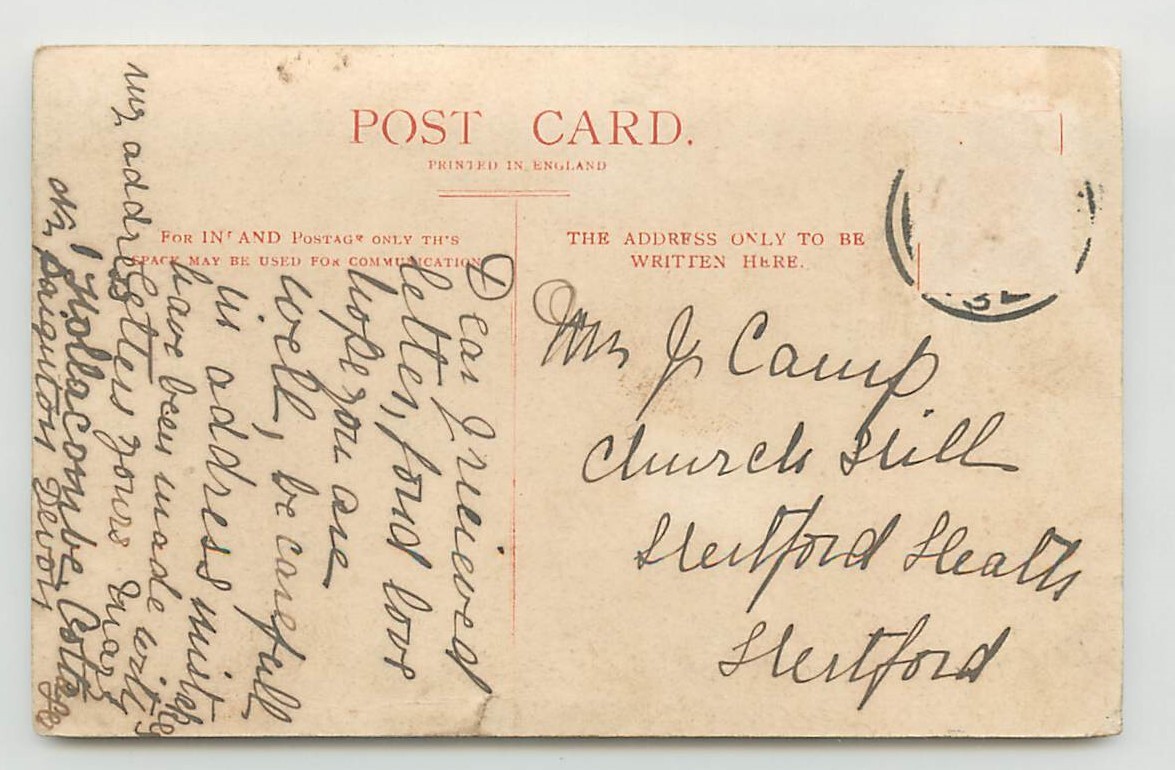 POST CARD.
PRINTED IN ENGLAND
FOR INLAND POSTAGE ONLY THIS
SPACE MAY BE USED FOR COMMUNICATION
THE ADDRESS ONLY TO BE
WRITTEN HERE.
Mrs J Camp
Church Hill
Hertford Heath
Hertford
Dear J recieved
letter, fond love
hope you are
well, be carefull
in address mistake
have been made with
letters yours Mary
my address
Hollacombe
Nr Paignton Devon